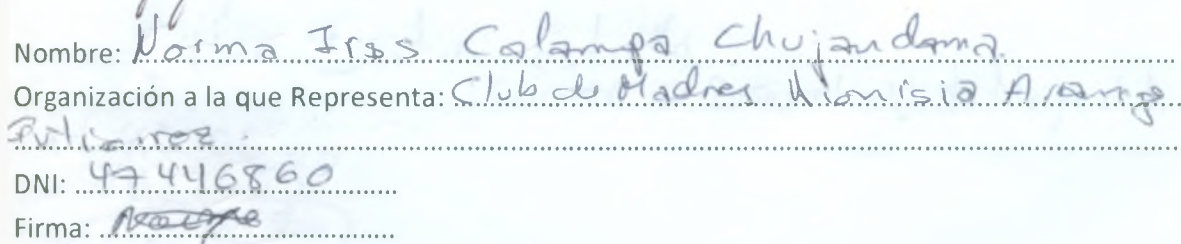 Nombre: Norma Iris Calampa Chujandama
Organización a la que Representa: Club de Madres Dionisia Arange
DNI: 47446860
Firma: